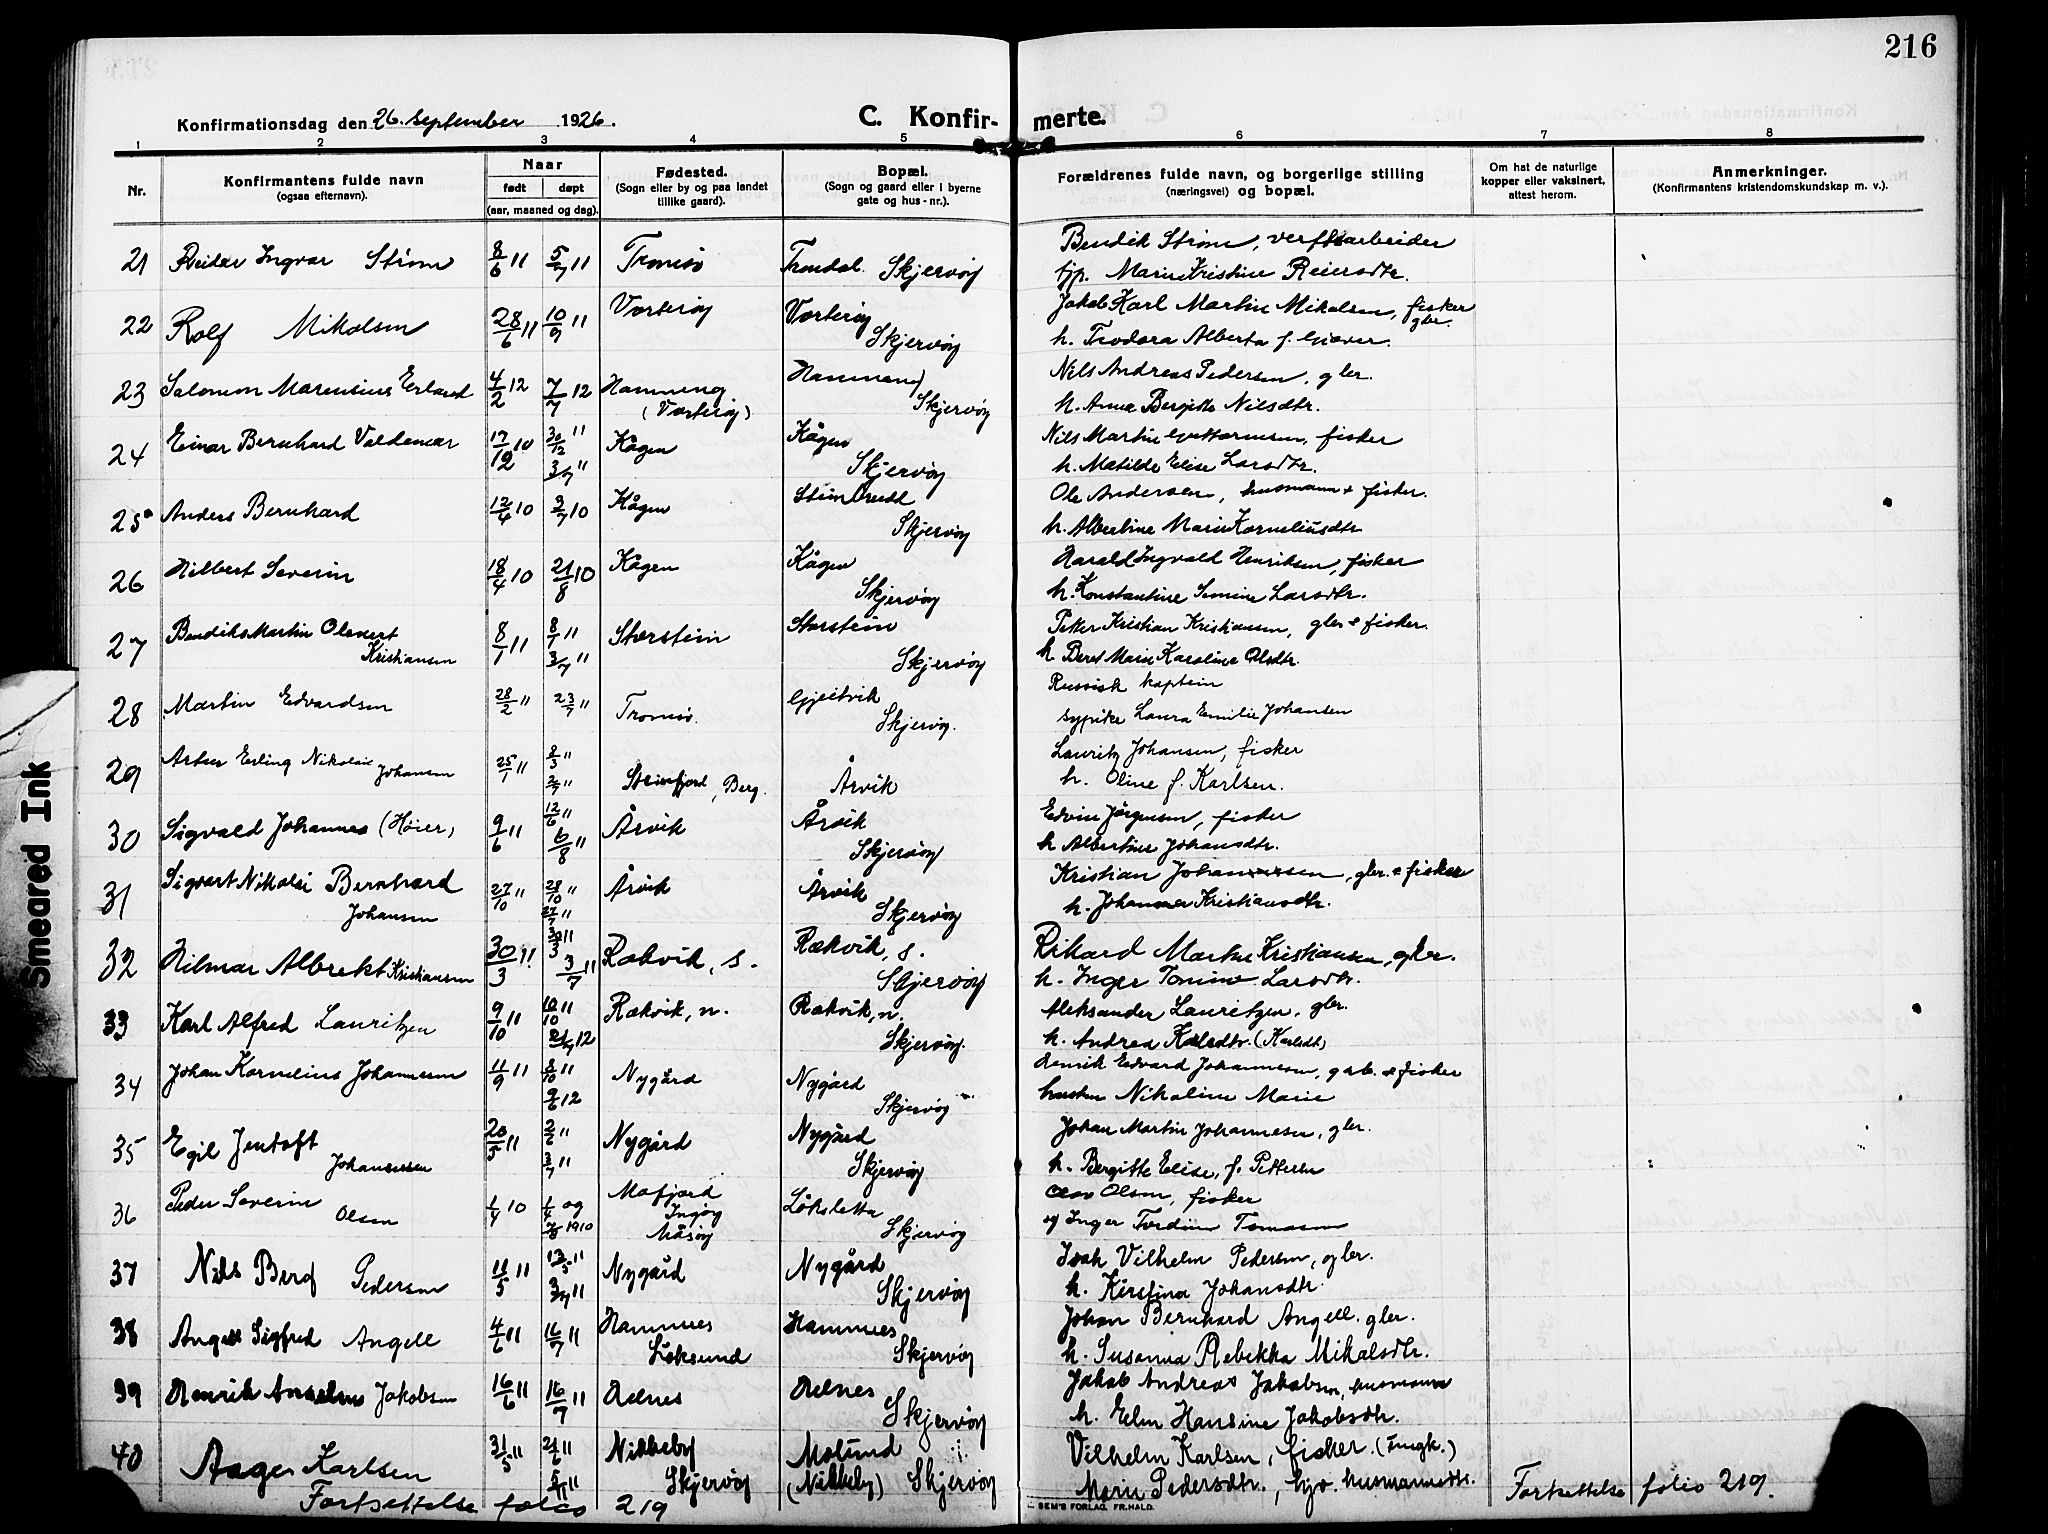 216
Konfirmationsdag den 26. september 1926.
C. Konfirmerte.
1 2 3 4 5 6 7 8
Nr.
Konfirmantens fulde navn
(ogsaa efternavn).
Naar
født døpt
(aar, maaned og dag).
Fødested.
(Sogn eller by og paa landet
tillike gaard).
Bopæl.
(Sogn og gaard eller i byerne
gate og hus-nr.).
Forældrenes fulde navn, og borgerlige stilling
(næringsvei) og bopæl.
Om hat de naturlige
kopper eller vaksinert,
attest herom.
Anmerkninger.
(Konfirmantens kristendomskundskap m. v.).
21 Reidar Ingvar Strøm 8/6 11 5/7 11 Tromsø Trondal. Skjervøy Bendik Strøm, verftsarbeider
fjp. Marie Kristine Reiersdtr.
22 Rolf Mikalsen 28/6 11 10/9 11 Vorterøy Vorterøy Jakob Karl Martin Mikalsen, fisker gbr.
Skjervøy h. Teodora Alberta f. Giæver.
23 Salomon Marensius Erland 4/2 12 7/7 12 Hamneng Hamneng Nils Andreas Pedersen, gbr.
(Vorterøy) Skjervøy h. Anna Bergitte Nilsdtr.
24 Einar Bernhard Valdemar 17/12 10 30/12 11 Kågen Kågen Nils Martin Guttormsen, fisker
3/7 11 Skjervøy h. Matilde Elise Larsdtr.
25 Anders Bernhard 12/4 10 3/7 10 Kågen Ole Andersen, husmann & fisker.
Skjervøy h. Albertine Marie Korneliusdtr
26 Hilbert Severin 18/4 10 21/8 10 Kågen Kågen Harald Ingvald Henriksen, fisker
Skjervøy h. Konstantine Larsdtr.
27 Bendiks Martin Olevert 8/1 11 8/1 11 Storstein Storstein Petter Kristian Kristiansen, gbr & fisker.
Kristiansen 3/7 11 Skjervøy h Beret Marie Karoline Olsdtr.
28 Martin Edvardsen 28/2 11 23/7 11 Tromsø. Gjeitvik Russisk kaptein
Skjervøy. sypike Laura Emilie Johansen
29 Artur Erling Nikolai Johansen 25/1 11 Steinfjord, Berg. Årvik Lauritz Johansen, fisker
h. Oline f. Karlsen.
30 Sigvald Johannes (Höier) 9/6 11 12/6 11 Årvik Årvik Edvin Jörgensen, fisker
6/8 11 Skjervøy h Albertine Johansdtr.
31 Sigvart Nikolai Bernhard 27/10 11 28/10 11 Årvik Årvik Kristian Johannessen, gbr. & fisker
Johansen Skjervøy h. Johanna Kristiansdtr.
32 Hilmar Albrekt Kristiansen 30/3 11 30/3 11 Rakvik, s. Rækvik, s. Rikard Martin Kristiansen, gbr.
3/7 11 Skjervøy h. Inger Tonine Larsdtr.
33 Karl Alfred Lauritzen 9/10 11 10/10 11 Rækvik, n. Rækvik, n. Aleksander Lauritzen, gbr.
Skjervøy. h. Andrea Karlsdtr. (Karlsdt)
34 Johan Kornelius Johannesen 11/9 11 8/10 11 Nygård Nygård Henrik Edvard Johannesen, & fisker
12 Skjervøy hustru Nikoline Marie
35 Egil Jentoft 20/5 11 2/6 11 Nygård Nygård Johan Martin Johannesen, gbr.
Johannessen 3/7 11 Skjervøy h. Bergitte Elise, f. Pettersen
36 Peder Severin 1/4 10 1/4 og Mafjord Olsen, fisker
Olsen 1910 Ingøy Måsøy Skjervøy og Inger Tomasen
37 Nils Berg Pedersen 11/5 11 13/5 11 Nygård Nygård Isak Vilhelm Pedersen, gbr.
3/7 11 Skjervøy h. Kirstina Johansdtr.
38 Angell Sigfred Angell 4/6 11 16/7 11 Hamnes Hamnes Johan Bernhard Angell. gbr.
Skjervøy h. Susanna Rebekka Mikalsdtr.
39 Henrik Anselm Jakobsen 16/6 11 16/7 11 Jakob Andreas Jakobsen, husmann
Skjervøy h. Hansine Jakobsdtr.
40 Aage Karlsen 31/5 11 Nikkeby Vilhelm Karlsen, fisker. (Ungk.)
Skjervøy (Nikkeby) Skjervøy Marie Pedersdtr., husmannsdtr.
Fortsettelse folio 219
Fortsettelse folio 219.
SEM'S FORLAG, FR.HALD.
Smeared Ink